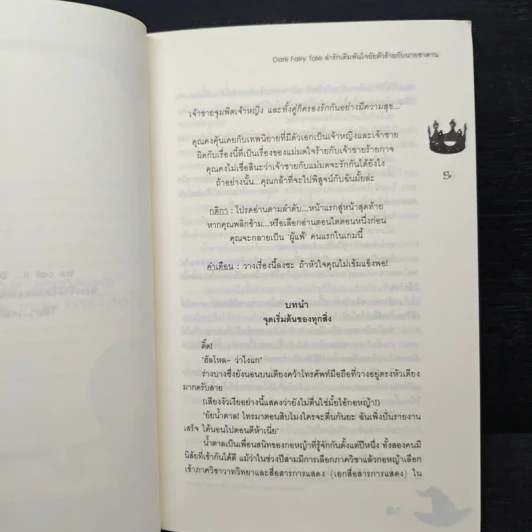 Dark Fairy Tale ล่ารักเดิมพันใจยัยตัวร้ายกับนายซาตาน
เจ้าชายจุมพิตเจ้าหญิง และทั้งคู่ก็ครองรักกันอย่างมีความสุข...
คุณคงคุ้นเคยกับเทพนิยายที่มีตัวเอกเป็นเจ้าหญิงและเจ้าชาย
ผิดกับเรื่องนี้ที่เป็นเรื่องของแม่มดใจร้ายกับเจ้าชายร้ายกาจ
คุณคงไม่เชื่อสินะว่าเจ้าชายกับแม่มดจะรักกันได้ยังไง
ถ้าอย่างนั้น...คุณกล้าที่จะไปพิสูจน์กับฉันมั้ยล่ะ
กติกา : โปรดอ่านตามลำดับ...หน้าแรกสู่หน้าสุดท้าย
หากคุณพลิกข้าม...หรือเลือกอ่านตอนใดตอนหนึ่งก่อน
คุณจะกลายเป็น 'ผู้แพ้' คนแรกในเกมนี้
คำเตือน : วางเรื่องนี้ลงซะ ถ้าหัวใจคุณไม่เข้มแข็งพอ!
บทนำ
จุดเริ่มต้นของทุกสิ่ง
ติ๊ด!
"ฮัลโหล~ ว่าไงแก"
ร่างบางซึ่งยังนอนบนเตียงคว้าโทรศัพท์มือถือที่วางอยู่ตรงหัวเตียง
มากดรับสาย
(เสียงงัวเงียอย่างนี้แสดงว่ายังไม่ตื่นใช่มั้ยไอ้กอหญ้า!)
"ยัยน้ำตาล! โทรมาตอนสิบโมงใครจะตื่นกันยะ ฉันเพิ่งปั่นรายงาน
เสร็จ ได้นอนไปตอนตีห้าเนี่ย"
น้ำตาลเป็นเพื่อนสนิทของกอหญ้าที่รู้จักกันตั้งแต่ปีหนึ่ง ทั้งสองคนมี
นิสัยที่เข้ากันได้ดี แม้ว่าในช่วงปีสามมีการเลือกภาควิชาแล้วกอหญ้าเลือก
เข้าภาควิชาวาทวิทยาและสื่อสารการแสดง (เอกสื่อสารการแสดง) ใน